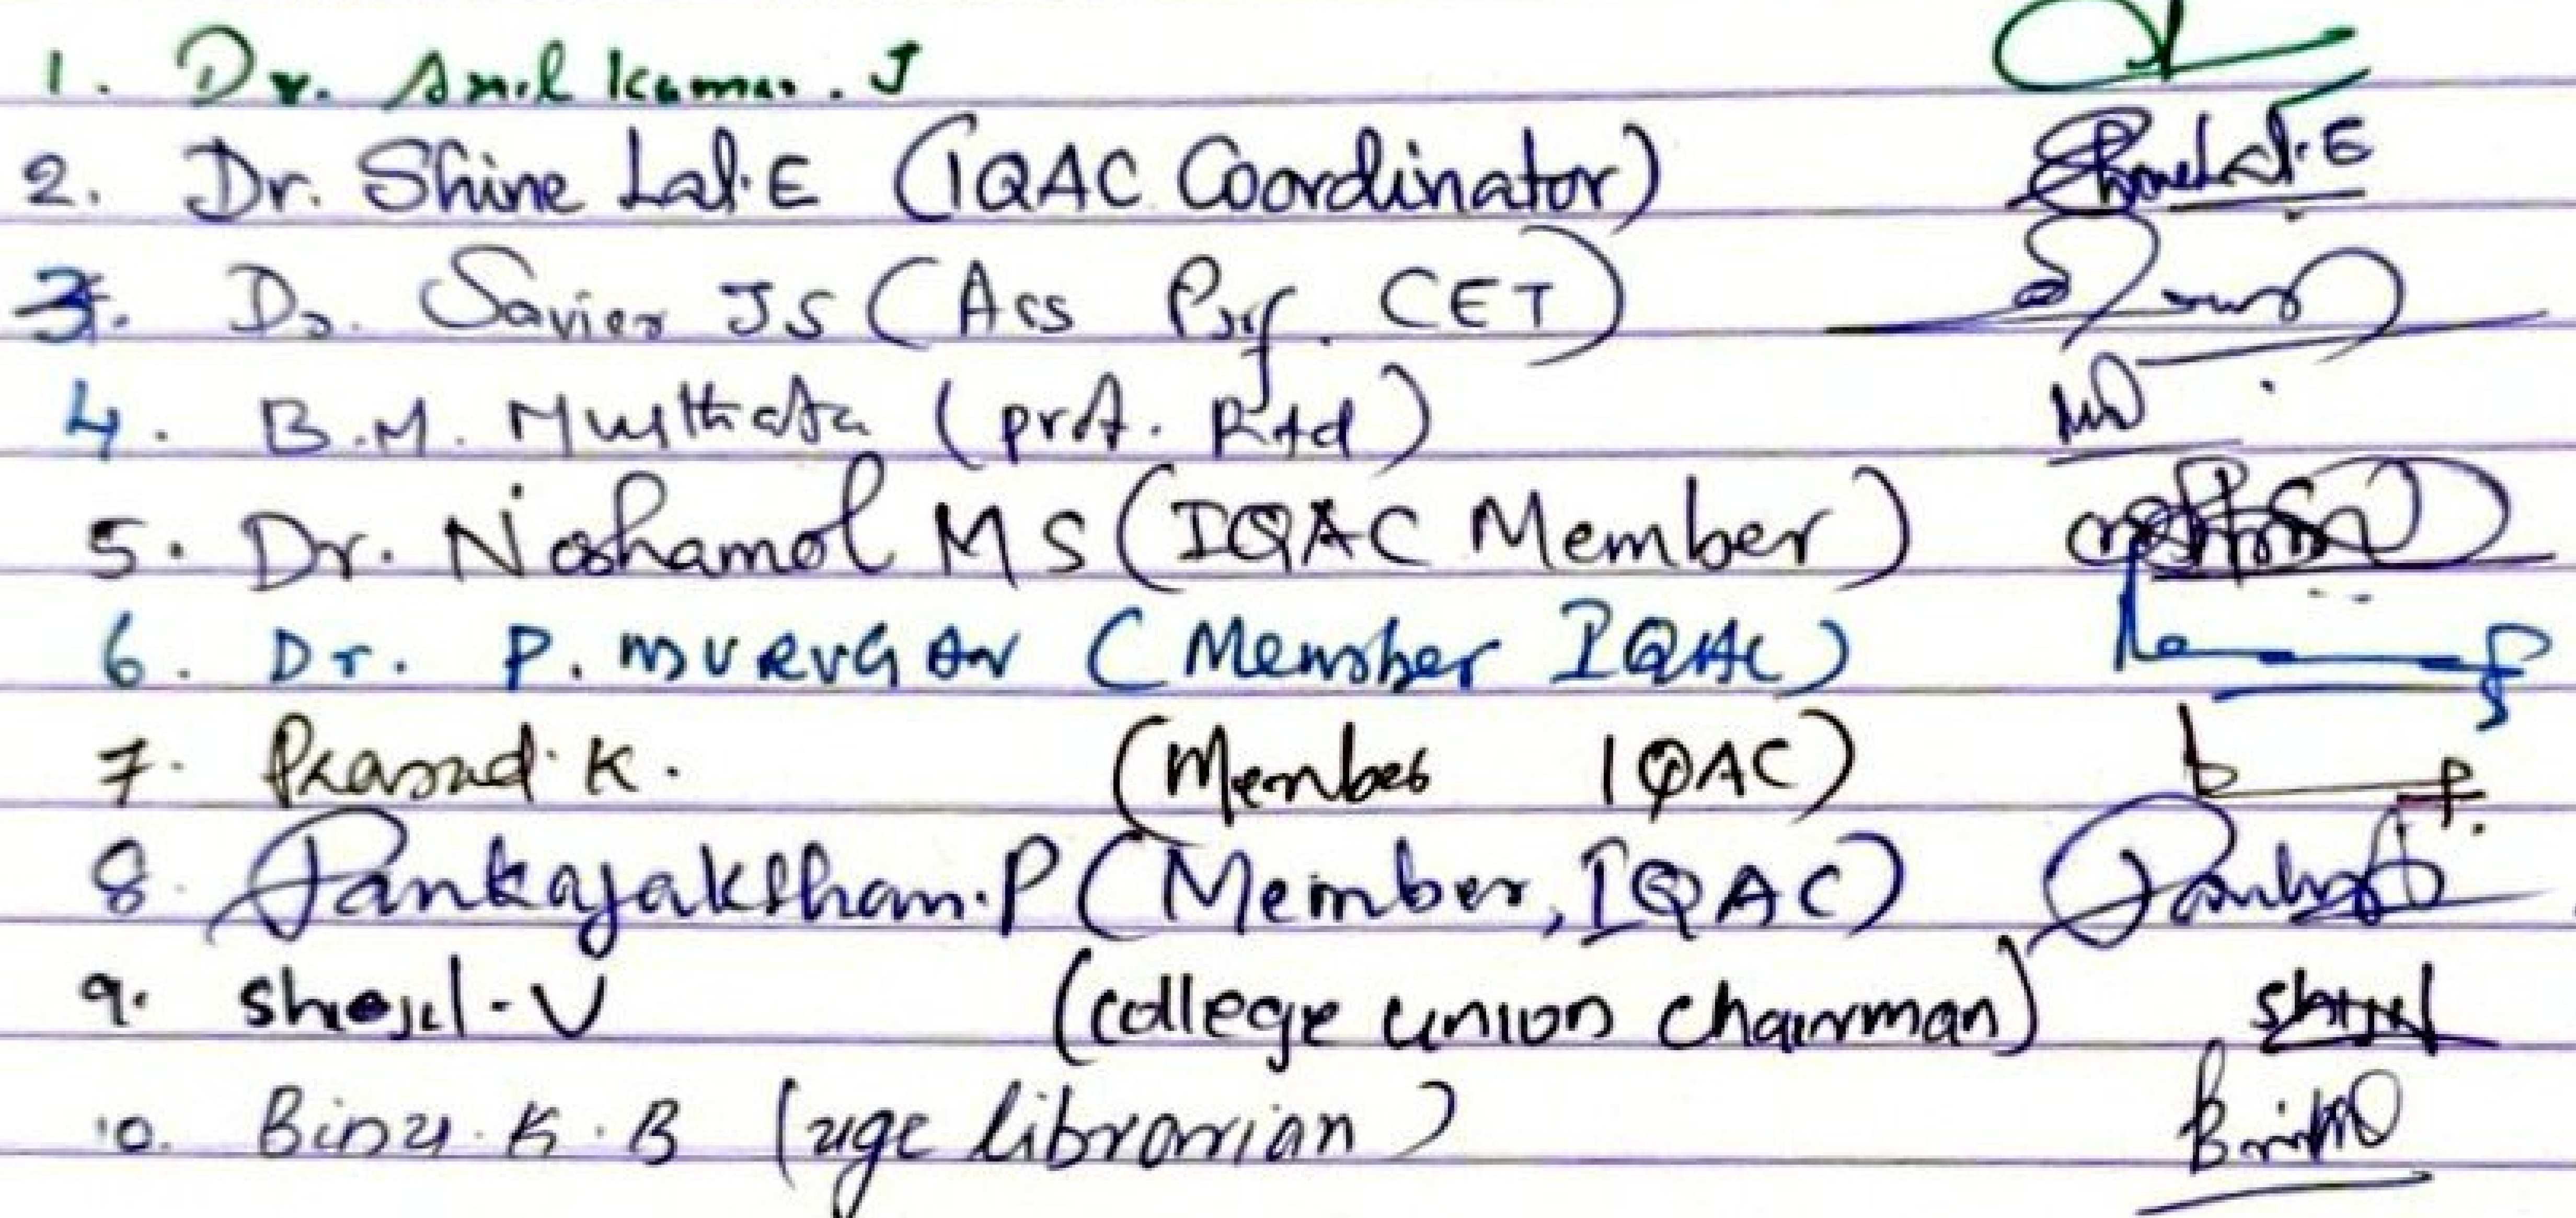 1. Dr. Anil Kumar. J
2. Dr. Shine Lal.E (IQAC Coordinator) ShineLal.E
3. Dr. Savier JS (Ass Prof. CET)
4. B.M. (prof. Rtd)
5. Dr. Nishamol MS (IQAC Member)
6. Dr. P. MURUGAN (Member IQAC)
7. Prasad. K. (Member IQAC)
8. Pankajakshan.P (Member, IQAC)
9. V (college union chairman)
10. Binu. K. B (ugc librarian)